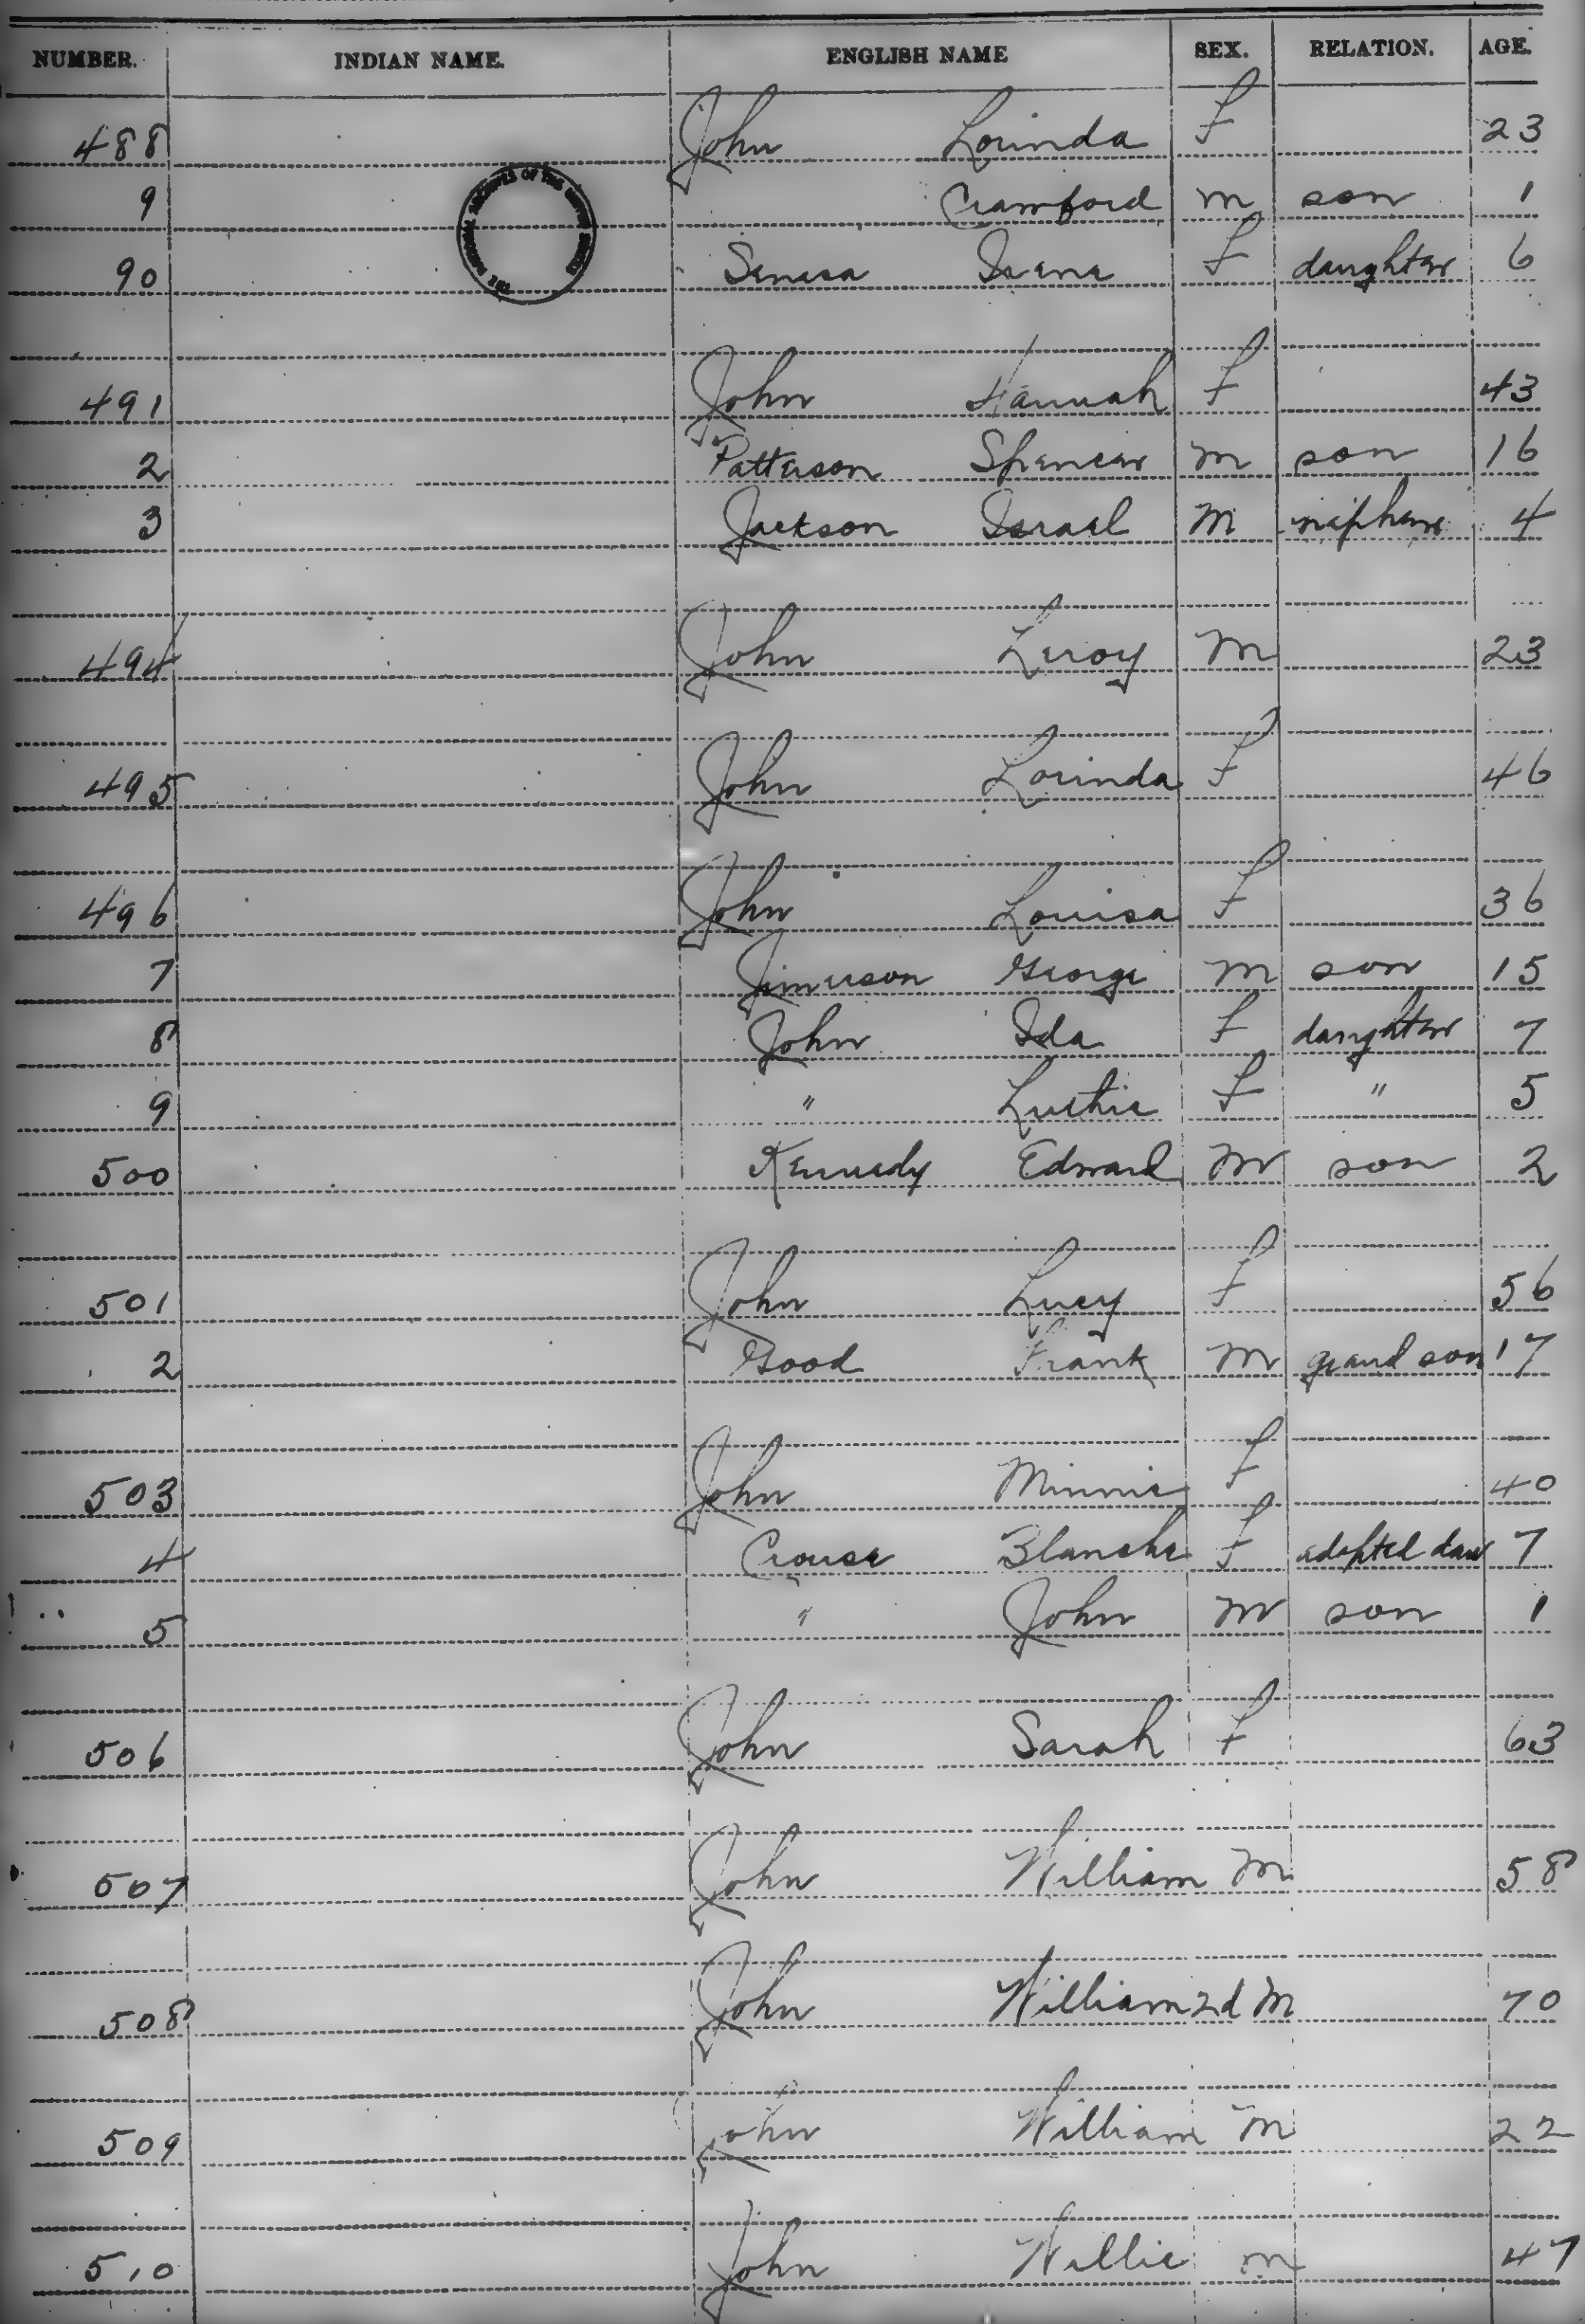 NUMBER. INDIAN NAME. ENGLISH NAME SEX. RELATION. AGE.
488 John Lorinda F 23
9 Crawford M son 1
90 Seneca Irene F daughter 6
491 John Hannah F 43
2 Patterson Spencer M son 16
3 Jackson Israel M nephew 4
494 John Leroy M 23
495 John Lorinda F 46
496 John Louisa F 36
7 Jimerson George M son 15
8 John Ida F daughter 7
9 " Luthie F " 5
500 Kennedy Edward M son 2
501 John Lucy F 56
2 Good Frank M grand son 17
503 John Minnie F 40
4 Crouse Blanche F adopted dau 7
5 " John M son 1
506 John Sarah F 63
507 John William M 58
508 John William 2d M 70
509 John William M 22
510 John Willie M 47